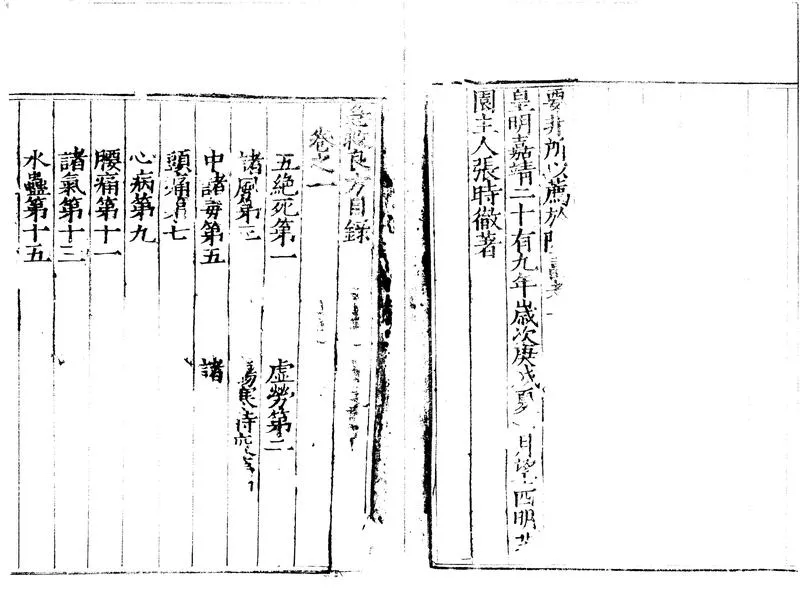 要并所以薦於
皇明嘉靖二十有九年歲次庚戌夏 月望四明芝
園主人張時徹著
急救良方目錄
卷之一
五絕死第一 虛勞第二
諸風第三 傷寒時疫第
中諸毒第五 諸
頭痛第七
心病第九
腰痛第十一
諸氣第十三
水蠱第十五